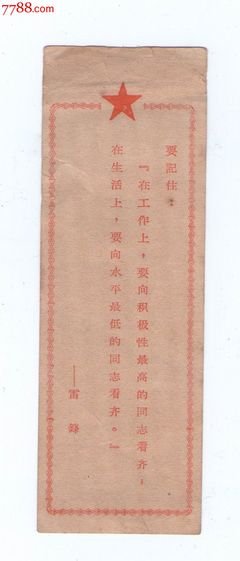 7788.com
要記住：
『在工作上，要向积极性最高的同志看齐；
在生活上，要向水平最低的同志看齐。』
——雷鋒